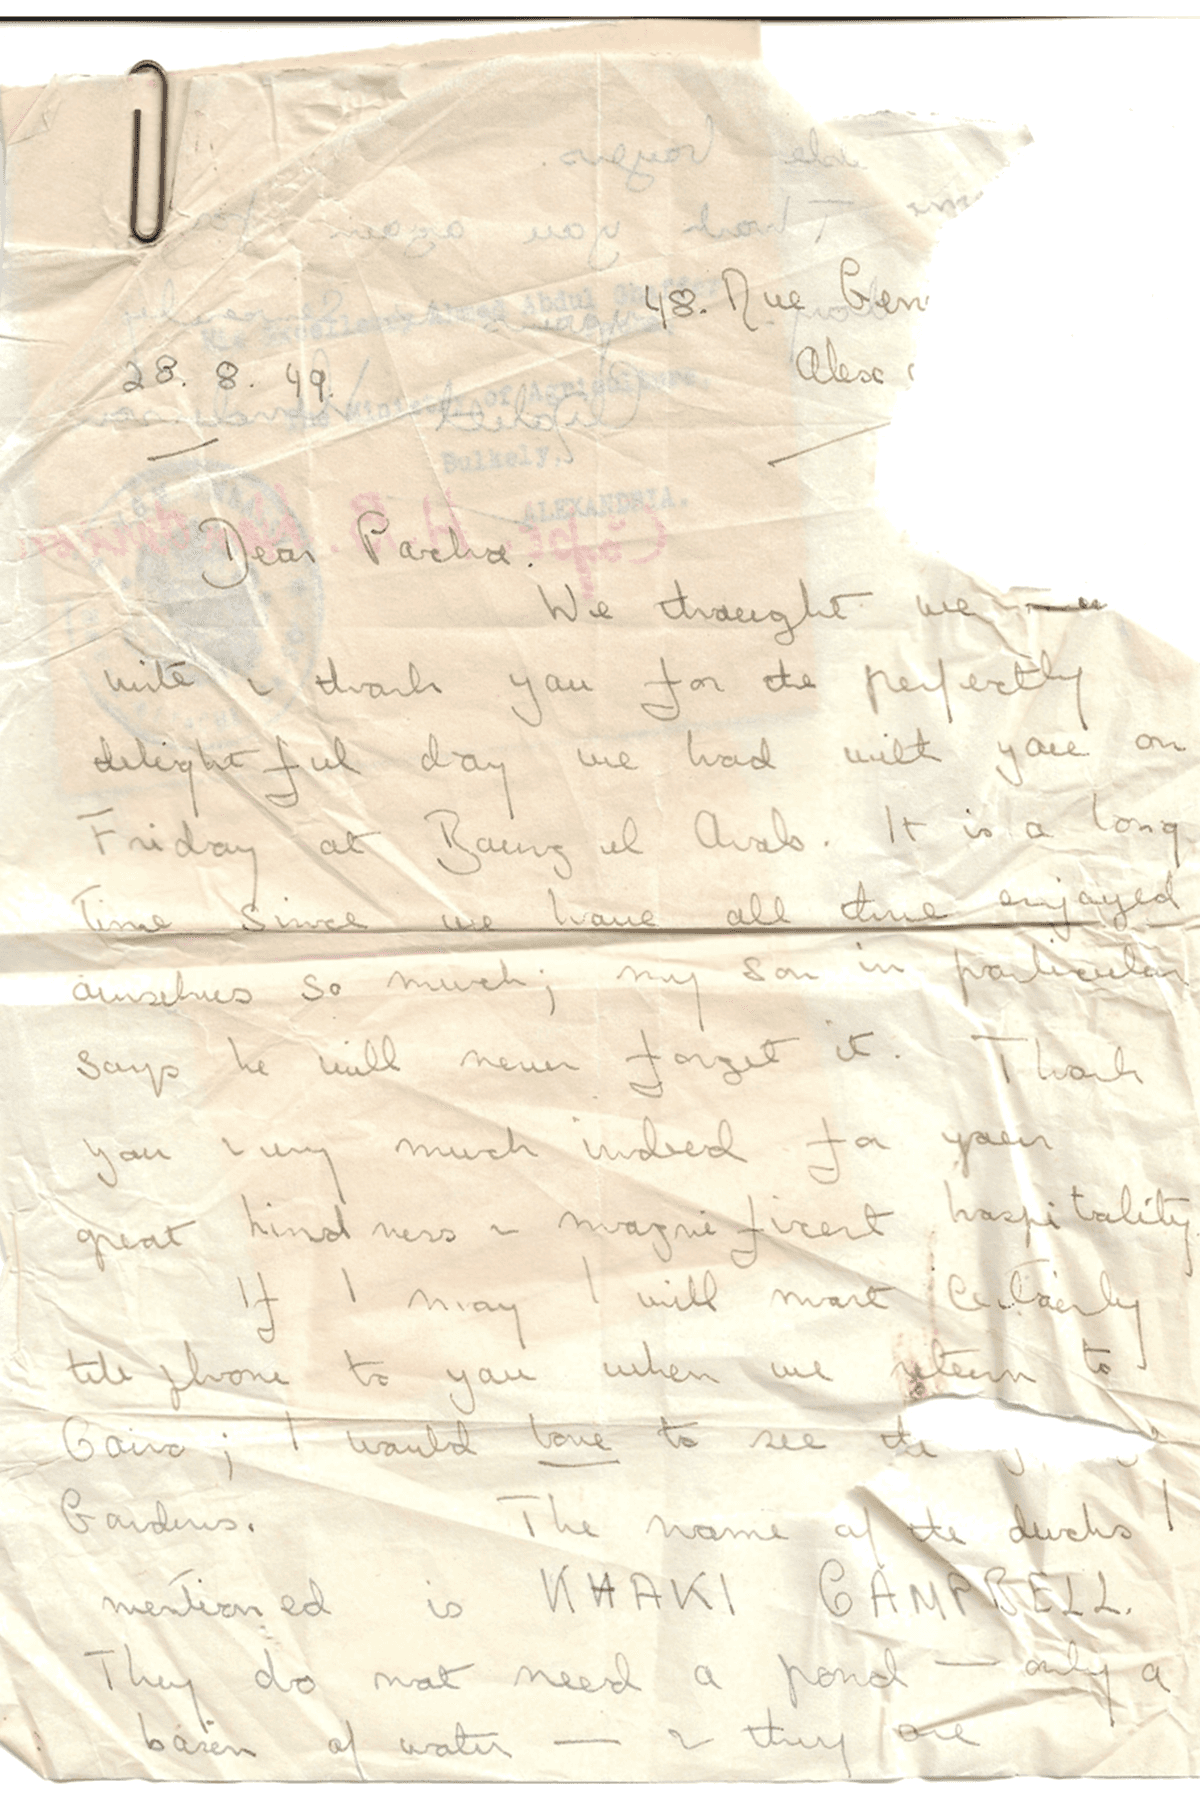 48. Rue Glen
Alex
28. 8. 49.
His Excellency Ahmed Abdul
Minister of Agriculture,
Bulkely.
ALEXANDRIA.
Dear Pacha.
We thought we
write & thank you for the perfectly
delightful day we had with you on
Friday at Bourg el Arab. It is a long
time since we have all three enjoyed
ourselves so much; my son in particular
says he will never forget it. Thank
you very much indeed for your
great kindness & magnificent hospitality
If I may I will most certainly
telephone to you when we return to
Cairo; I would love to see the
Gardens. The name of the ducks I
mentioned is KHAKI CAMPBELL.
They do not need a pond — only a
basin of water — & they are